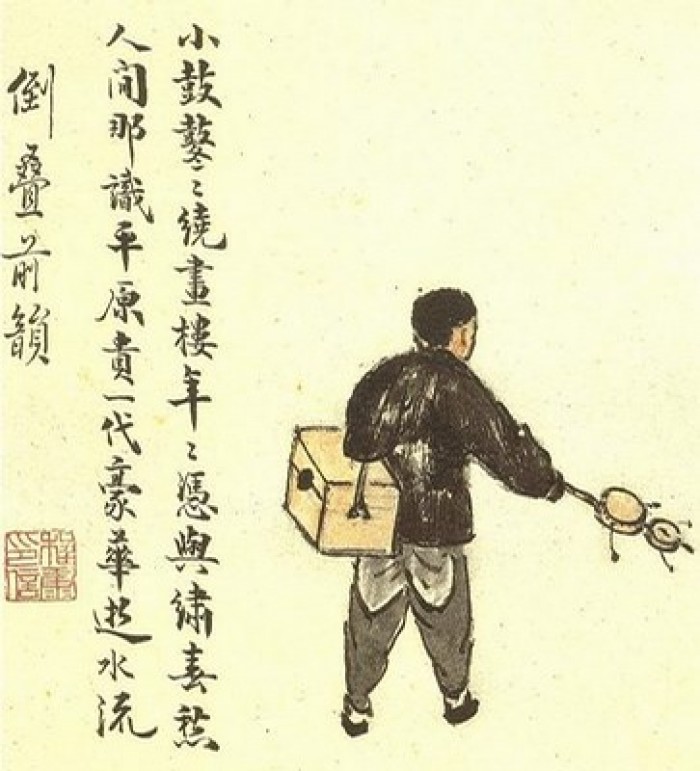 小鼓鼕〻繞畫樓年〻憑與繡春愁
人间那識平原貴一代豪華逝水流
倒疊前韻